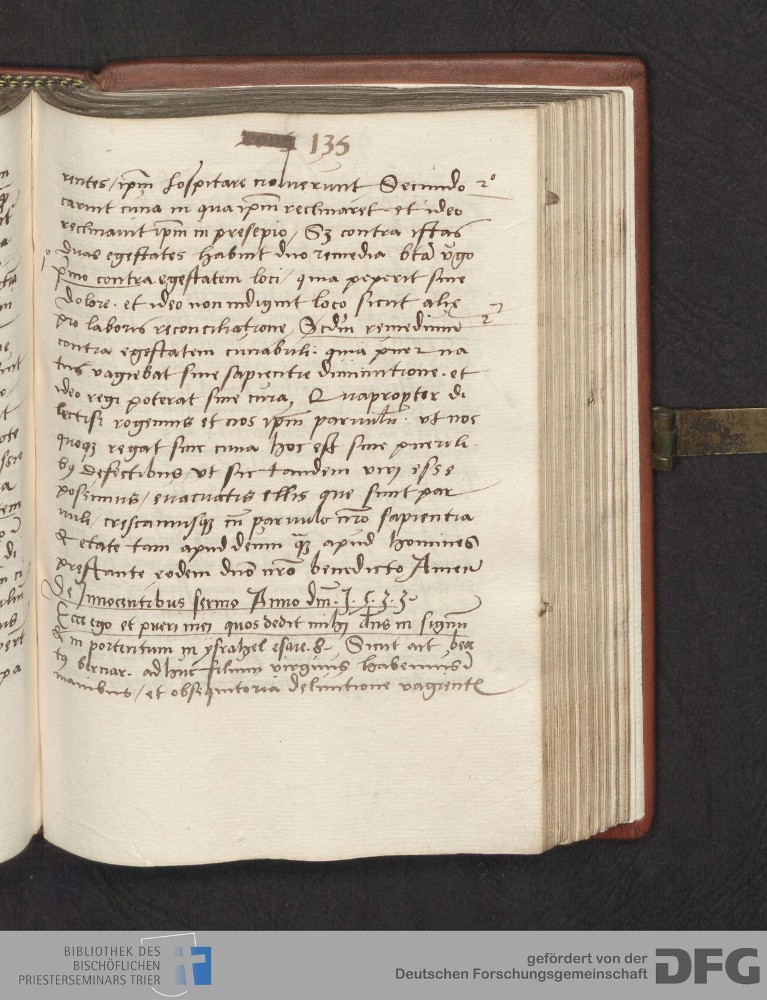 135
rentes / ipm̄ hospitare noluerunt Secundo 2º
caruit cuna in qua ipm̄ reclinaret et ideo
reclinauit ipm̄ in presepio / Sz contra istas
duas egestates habuit duo remedia btā v̄go
pͥmo contra egestatem loci / quia peperit sine 1º
dolore. et ideo non indiguit loco sicut alię
pro laboris reconciliatione / Scdm̄ remedium 2
contra egestatem cunabuli: quia puer na
tus vagiebat sine sapientie diminutione. et
ideo regi poterat sine cura, Quapropter di
lectisͥ rogemus et nos ipm̄ paruulū. vt nos
quoqz regat sine cuna hoc est sine puerili
bꝰ defectibus / vt sic tandem viri esse
possimus / euacuatis illis que sunt par
uuli / crescamusqz cū paruulo nr̄o sapientia
& etate tam apud deum quā apud homines
prestante eodem dnō nr̄o benedicto Amen
De Innocentibus sermo Anno dnī. 1.5.3.3
Ecce ego et pueri mei quos dedit mihi dn̄s in signum
& in portentum in ysrahel esaie. 8. Sicut ait bea
tꝰ bernar. adhuc filium virginis habemus ī
manibus / et obsequitoria delinitione vagient
BIBLIOTHEK DES
BISCHÖFLICHEN
PRIESTERSEMINARS TRIER
gefördert von der
Deutschen Forschungsgemeinschaft
DFG